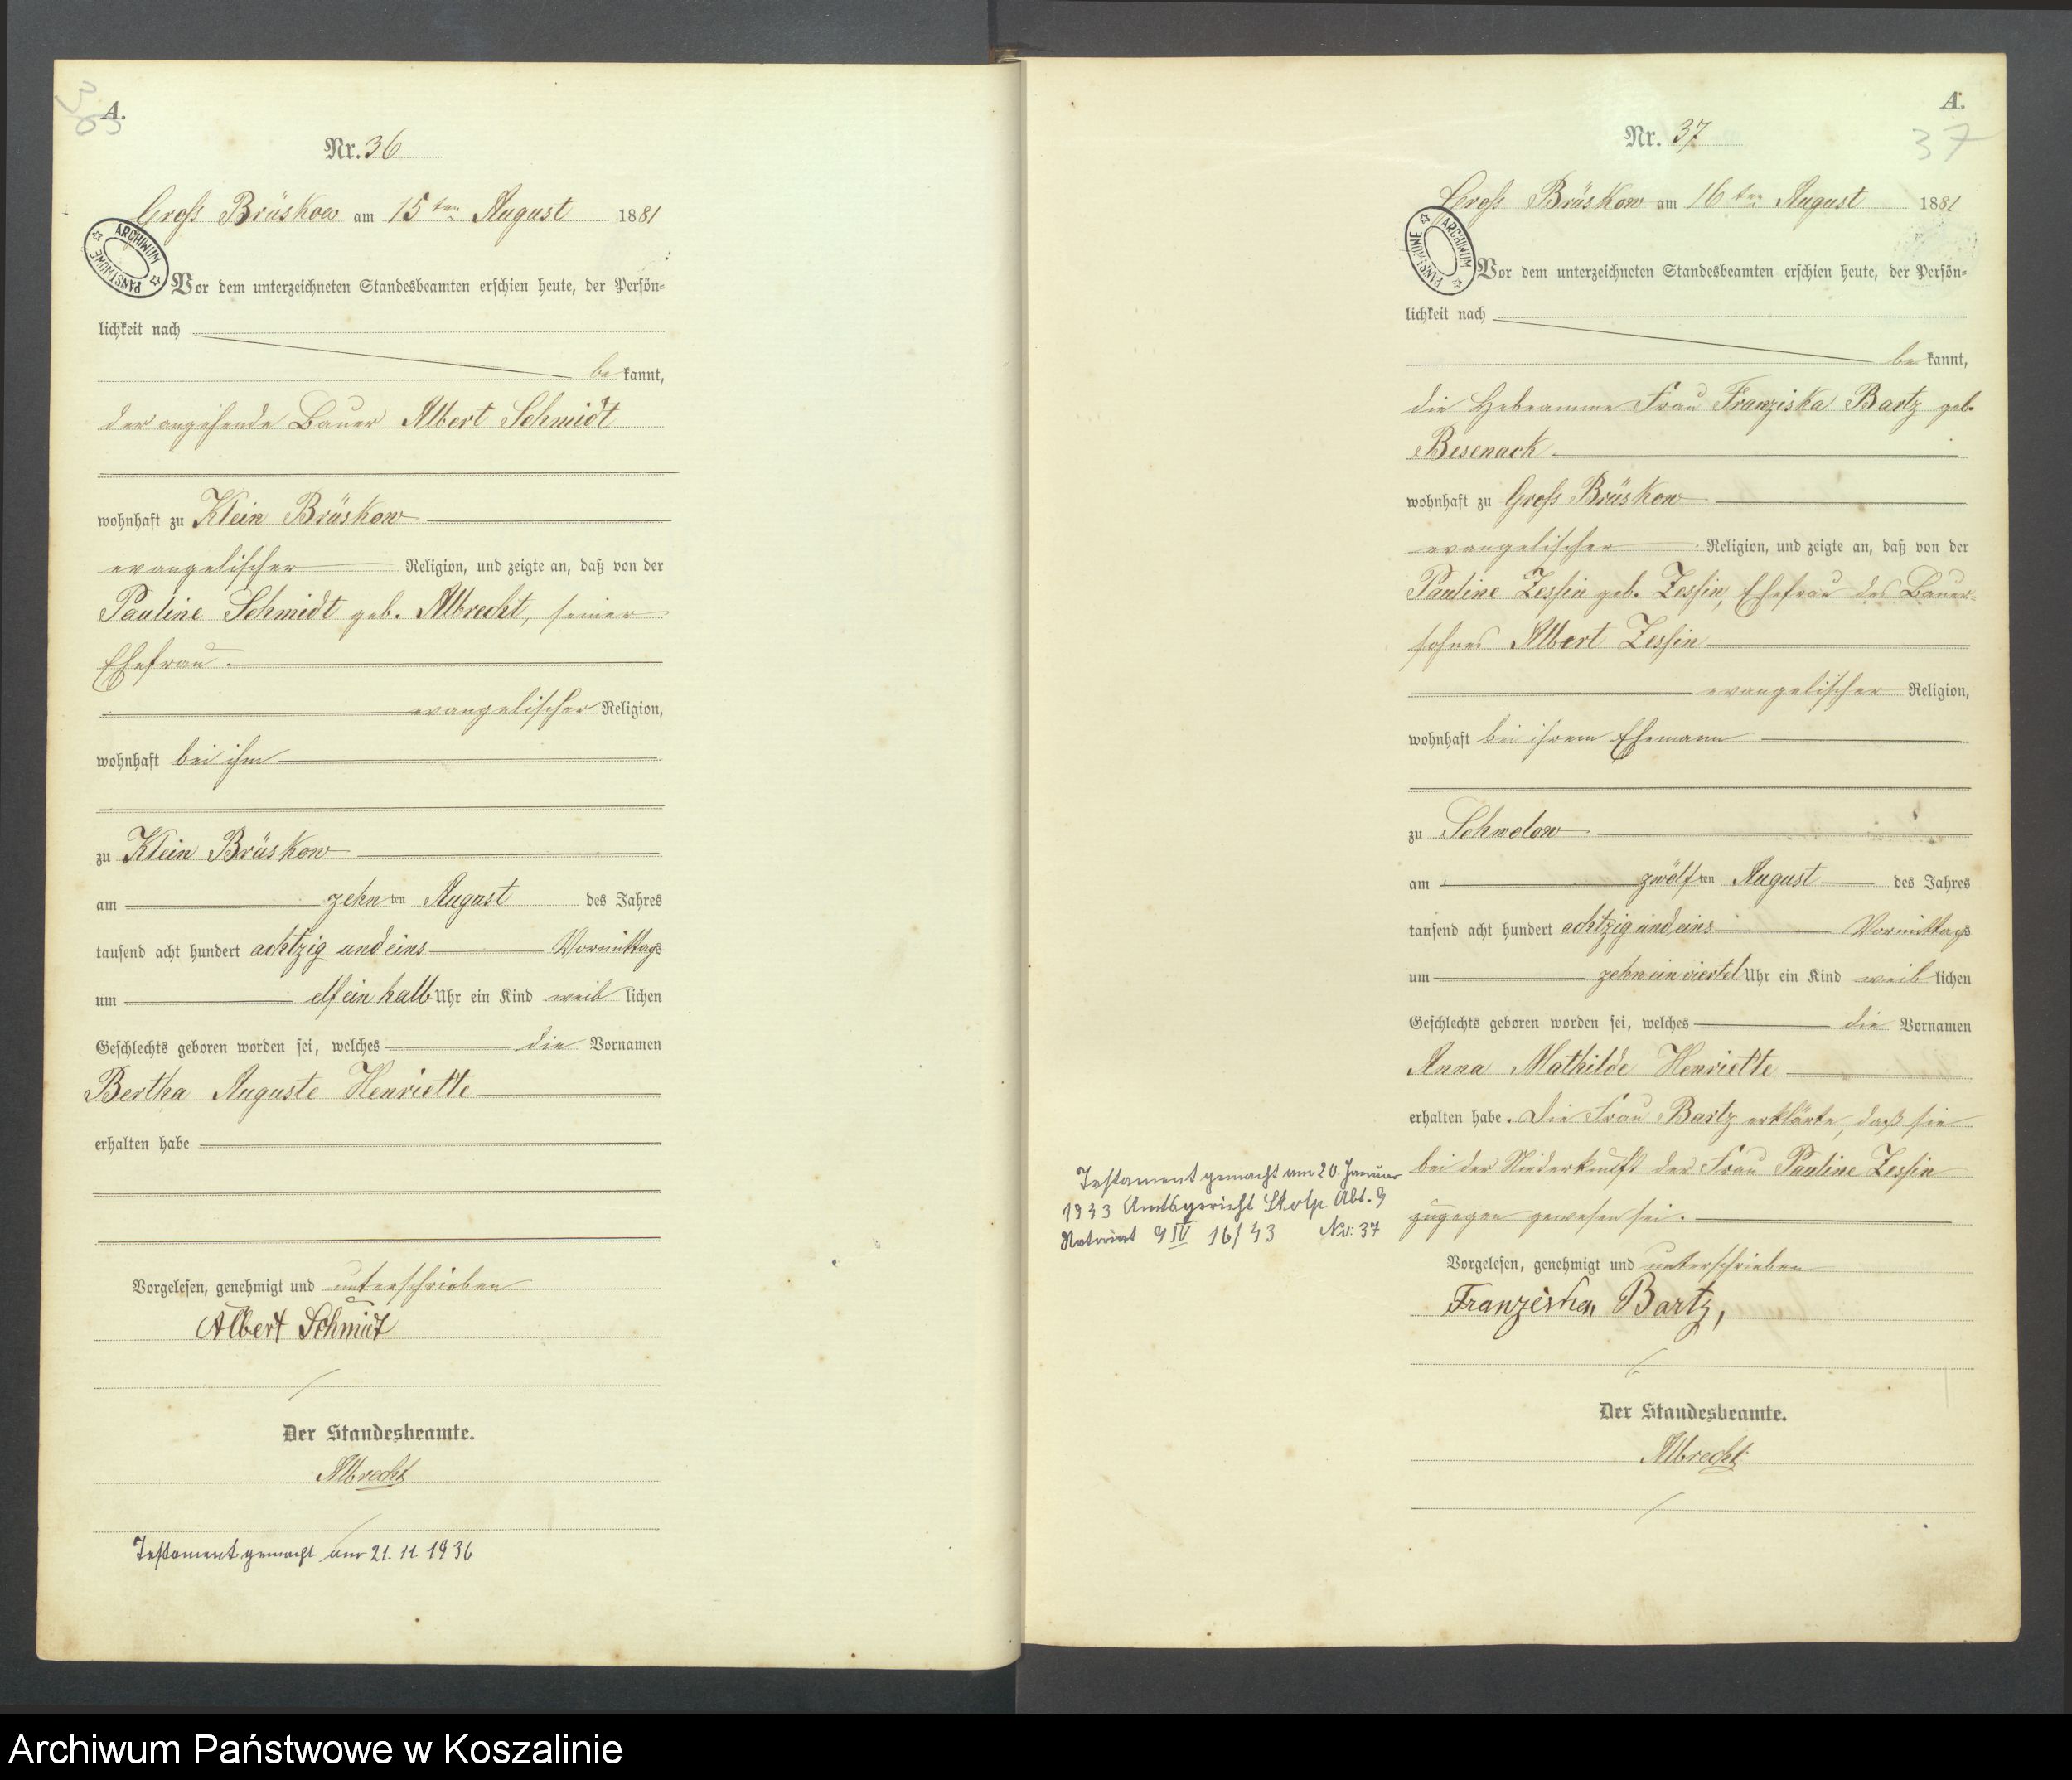 A.
36
Nr. 36
Groß Brüskow am 15ten August 1881
ARCHIWUM PAŃSTWOWE
Vor dem unterzeichneten Standesbeamten erschien heute, der Persön-
lichkeit nach
be kannt,
der angehende Bauer Albert Schmidt
wohnhaft zu Klein Brüskow
evangelischer Religion, und zeigte an, daß von der
Pauline Schmidt geb. Albrecht, seiner
Ehefrau
evangelischer Religion,
wohnhaft bei ihm
zu Klein Brüskow
am zehnten August des Jahres
tausend acht hundert achtzig und eins Vormittags
um elf ein halb Uhr ein Kind weiblichen
Geschlechts geboren worden sei, welches die Vornamen
Bertha Auguste Henriette
erhalten habe
Vorgelesen, genehmigt und unterschrieben
Albert Schmidt
Der Standesbeamte.
Albrecht
Testament gemacht am 21. 11. 1936
A.
37
Nr. 37
Groß Brüskow am 16ten August 1881
ARCHIWUM PAŃSTWOWE
Vor dem unterzeichneten Standesbeamten erschien heute, der Persön-
lichkeit nach
be kannt,
die Hebeamme Frau Franziska Bartz geb.
Besenack
wohnhaft zu Groß Brüskow
evangelischer Religion, und zeigte an, daß von der
Pauline Zessin geb. Zessin, Ehefrau des Bauer-
sohnes Albert Zessin
evangelischer Religion,
wohnhaft bei ihrem Ehemann
zu Schwolow
am zwölften August des Jahres
tausend acht hundert achtzig und eins Vormittags
um zehn ein viertel Uhr ein Kind weiblichen
Geschlechts geboren worden sei, welches die Vornamen
Anna Mathilde Henriette
erhalten habe. Die Frau Bartz erklärte, daß sie
bei der Niederkunft der Frau Pauline Zessin
zugegen gewesen sei.
Vorgelesen, genehmigt und unterschrieben
Franziska Bartz,
Der Standesbeamte.
Albrecht
Testament gemacht am 20. Januar
1943 Amtsgericht Stolp Abt. 9
Notariat 9 IV 16/43 Nr: 37
Archiwum Państwowe w Koszalinie